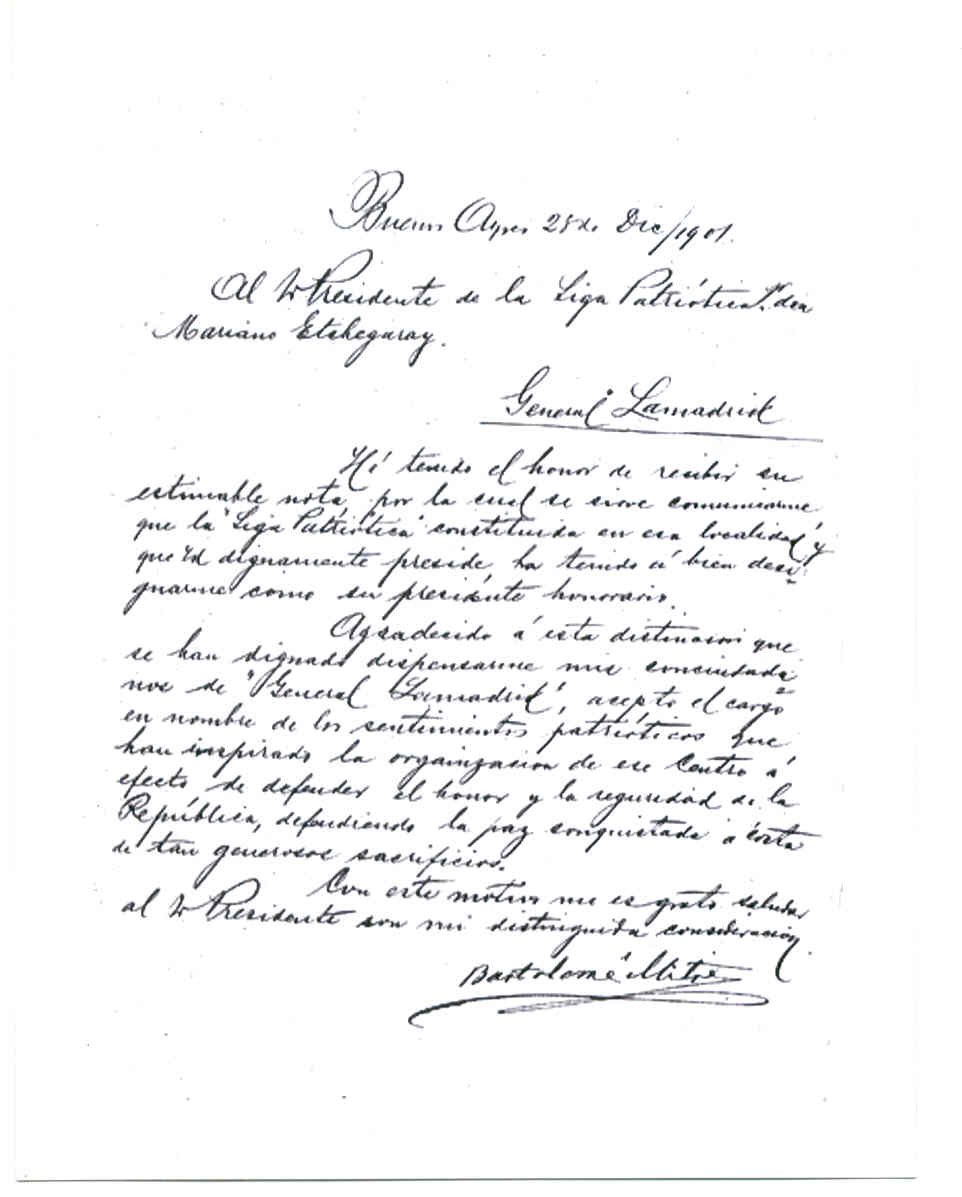 Buenos Ayres 28 de Dic/1901.
Al Sr Presidente de la Liga Patriótica Sr don
Mariano Etchegaray.
General Lamadrid
Hé tenido el honor de recibir su
estimable nota por la cual se sirve comunicarme
que la "Liga Patriótica" constituida en esa localidad y
que Ud dignamente preside, ha tenido á bien desi-
gnarme como su presidente honorario.
Agradecido á esta distincion que
se han dignado dispensarme mis conciudada-
nos de "General Lamadrid", acepto el cargo
en nombre de los sentimientos patrióticos que
han inspirado la organizacion de ese Centro á
efecto de defender el honor y la seguridad de la
República, defendiendo la paz conquistada á costa
de tan generosos sacrificios.
Con este motivo me es grato saludar
al Sr Presidente con mi distinguida consideración.
Bartolomé Mitre